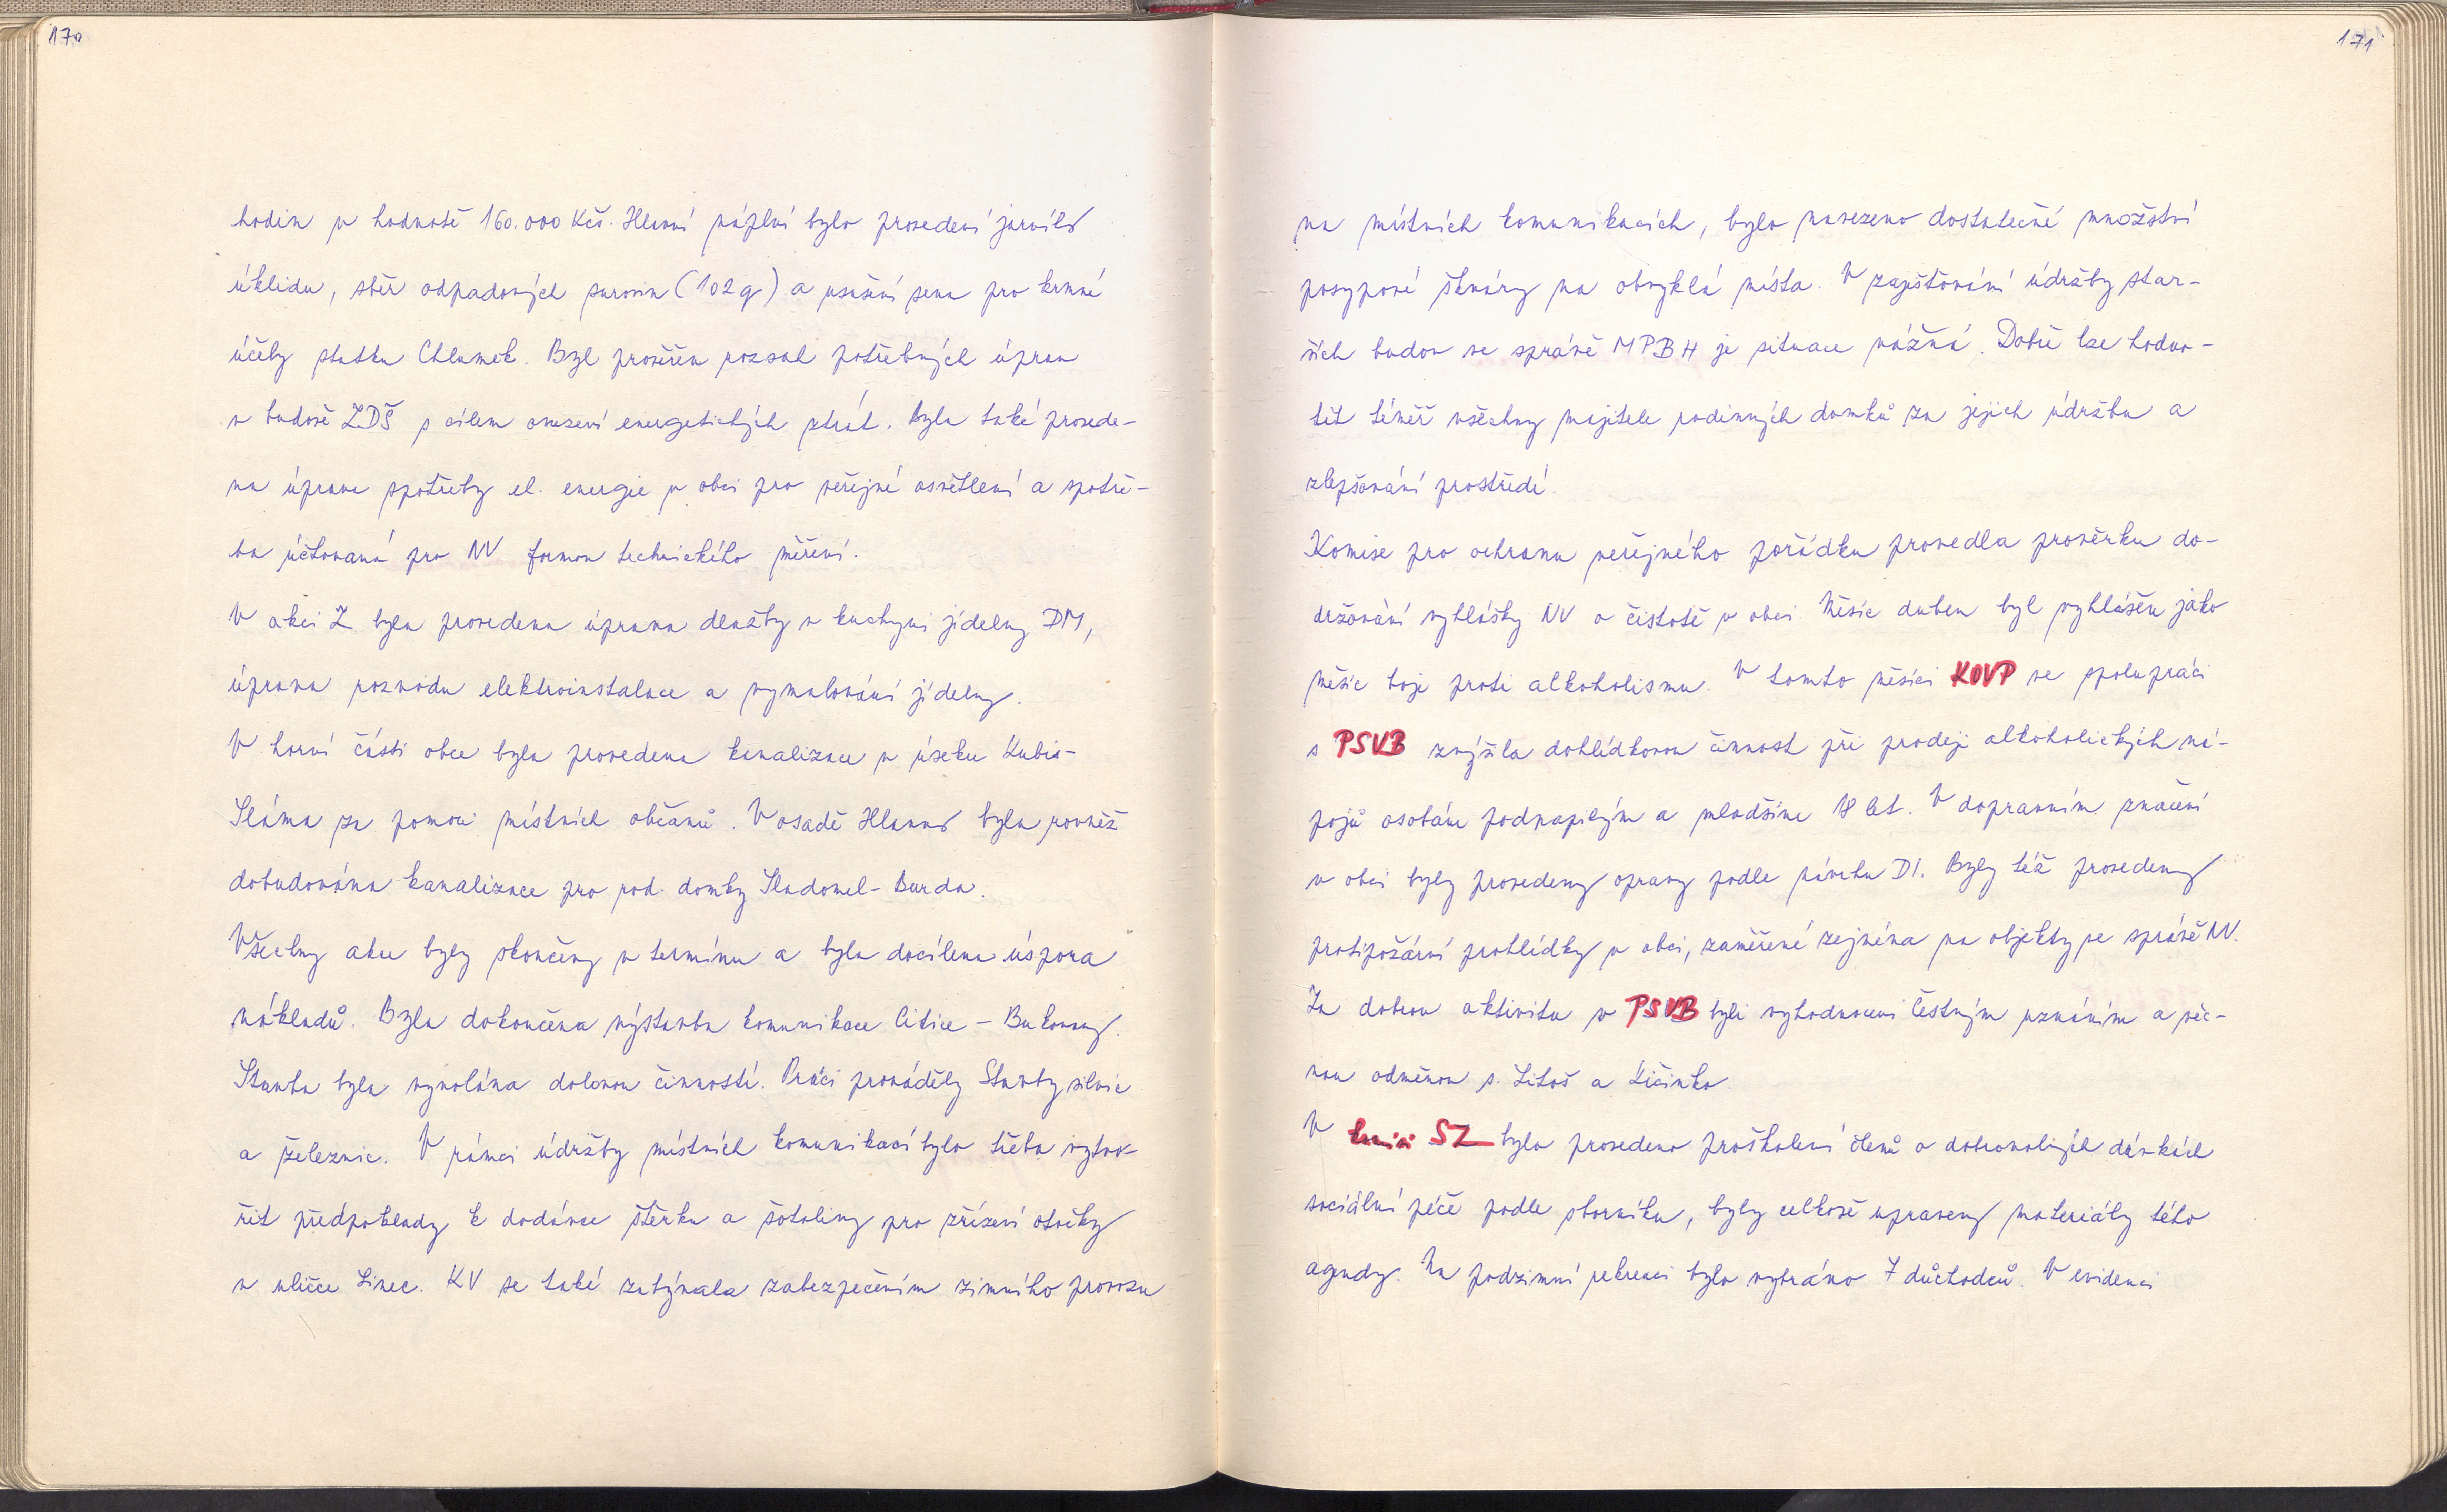 170
hodin v hodnotě 160.000 Kčs. Hlavní náplní bylo provedení jarního
úklidu, sběr odpadových surovin (102 q) a usušení sena pro krmné
účely statku Chlumek. Byl prověřen rozsah potřebných úprav
v budově ZDŠ s cílem omezení energetických ztrát. Byla také provede-
na úprava spotřeby el. energie v obci pro veřejné osvětlení a spotře-
ba účtovaná pro NV formou technického měření.
V akci Z byla provedena úprava dlažby v kuchyni jídelny DM,
úprava rozvodu elektroinstalace a vymalování jídelny.
V horní části obce byla provedena kanalizace v úseku Kubis-
Sláma za pomoci místních občanů. V osadě Hlavno byla rovněž
dobudována kanalizace pro rod. domky Sladomel - Burda.
Všechny akce byly skončeny v termínu a byla docílena úspora
nákladů. Byla dokončena výstavba komunikace Citice - Bukovany.
Stavba byla vyvolána dolovou činností. Práci prováděly Stavby silnic
a železnic. V rámci údržby místních komunikací bylo třeba vytvo-
řit předpoklady k dodávce štěrku a šotoliny pro zřízení otočky
v uličce Linec. KV se také zabývala zabezpečením zimního provozu
171
na místních komunikacích, bylo navezeno dostatečné množství
posypové škváry na obvyklá místa. V zajišťování údržby star-
ších budov ve správě MPBH je situace vážná. Dobře lze hodno-
tit téměř všechny majitele rodinných domků za jejich údržbu a
zlepšování prostředí.
Komise pro ochranu veřejného pořádku provedla prověrku do-
držování vyhlášky NV o čistotě v obci. Měsíc duben byl vyhlášen jako
měsíc boje proti alkoholismu. V tomto měsíci KOVP ve spolupráci
s PSVB zvýšila dohlídkovou činnost při prodeji alkoholických ná-
pojů osobám podnapilým a mladším 18 let. V dopravním značení
v obci byly provedeny opravy podle návrhu DI. Byly též provedeny
protipožární prohlídky v obci, zaměřené zejména na objekty ve správě NV.
Za dobrou aktivitu v PSVB byli vyhodnoceni čestným uznáním a věc-
nou odměnou s. Litoš a Kičinko.
V komisi SZ bylo provedeno proškolení členů o dobrovolných dávkách
sociální péče podle sborníku, byly celkově upraveny materiály této
agendy. Na podzimní rekreaci bylo vybráno 7 důchodců. V evidenci